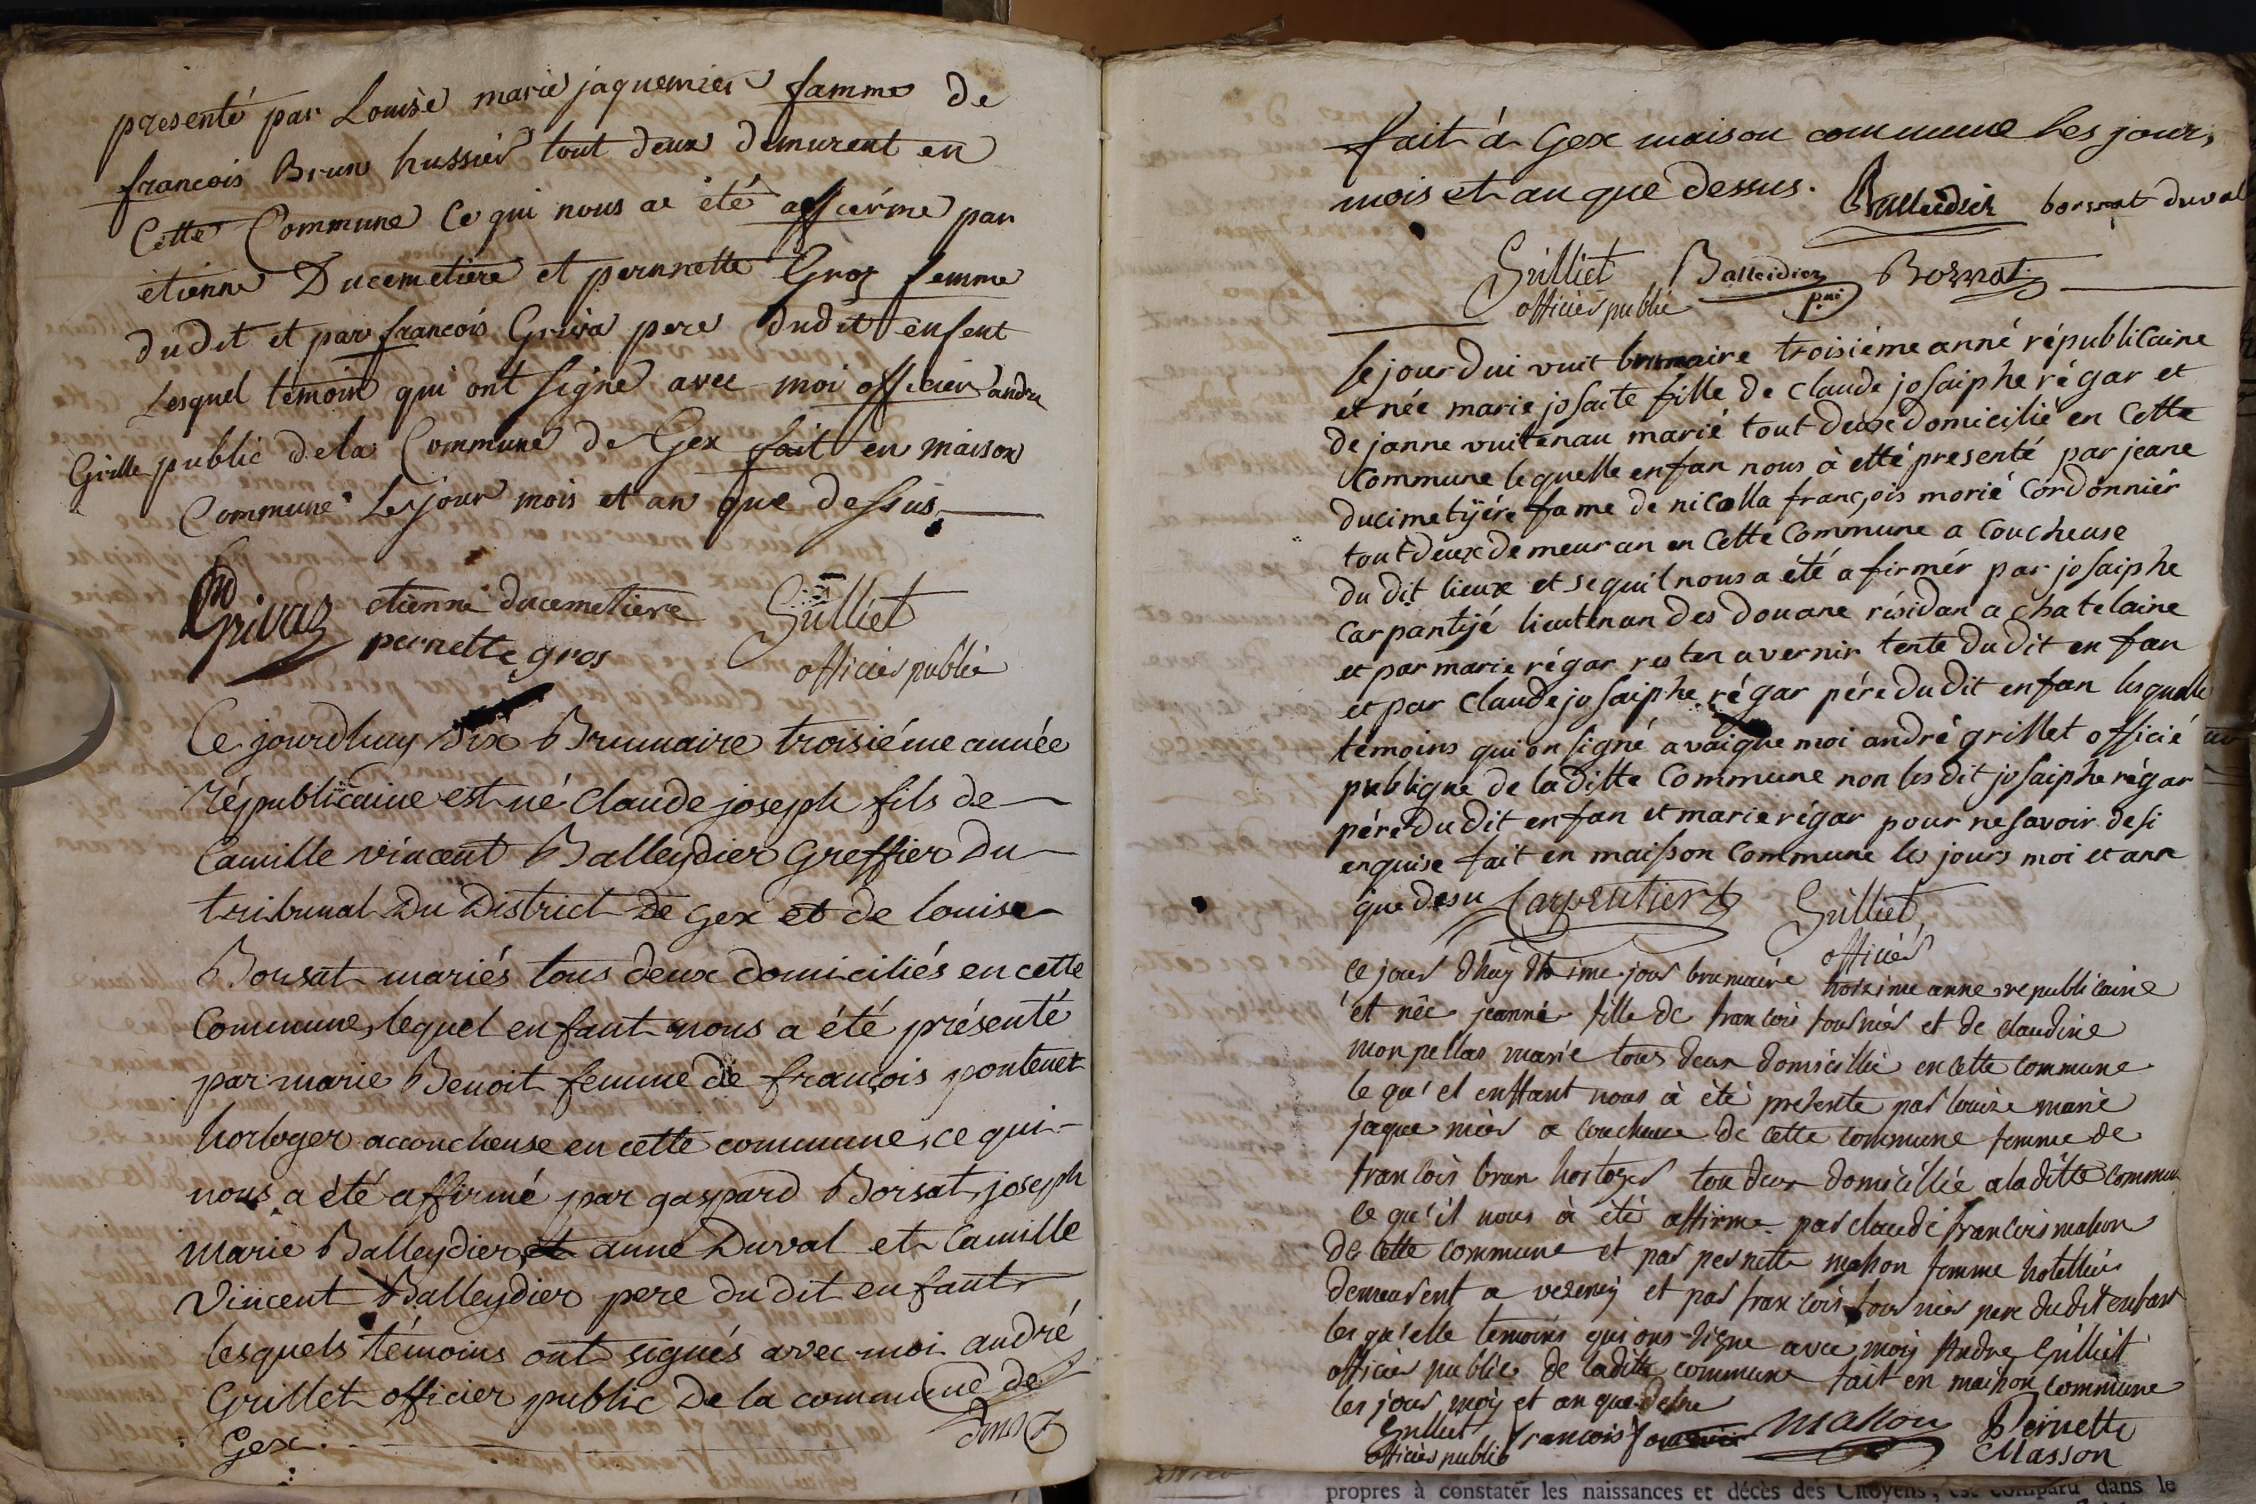 presenté par Louise marie jaquemier famme de
francois Brun hussier tout deux demurent en
Cette Commune Ce qui nous a été afferme par
etienne Ducemetiere et pernnette Gros femme
dudit et par francois Griva pere dudit enfent
Lesquel temoin qui ont signe avec moi officier andre
Grille public dela Commune de Gex fait en maison
Commune Lesjour mois et an que dessus
Grivaz etienne ducemetiere Grilliet
pernette gros officier public
Ce jourdhuy dix Brumaire troisiéme année
républicaine est né Claude joseph fils de
Camille vincent Balleydier Greffier Du
tribunal Du District De Gex et de louise
Borsat mariés tous deux domiciliés en cette
Commune, lequel enfant nous a été présenté
par marie Benoit femme de françois pontenet
horloger accoucheuse en cette commune, ce qui
nous a été affirmé par gaspard Borsat, joseph
marie Balleydier, et anne Duval et Camille
Vincent Balleydier pere du dit enfant
lesquels témoins ont signés avec moi andré
Grillet officier public De la commune de
Gex.
fait à Gex maison commune les jour,
mois et an que dessus. Balleidier borsat duval
Grilliet Balleidier Borsat
officier public
se jourdui vuit brumaire troisiéme anné républicaine
et née marie josaite fille de claude josaiphe régar et
de janne vuitenau marié tout deux domicilié en Cette
Commune lequelle enfan nous à etté presenté par jeane
ducimetijére fame de nicolla françois morié Cordonniér
tout deux demeuran en Cette Commune a Coucheuse
du dit lieux et sequil nous a été afirmér par josaiphe
Carpantijé lieutenan des douane résidan a chatelaine
et par marie régar resten avernir tente du dit enfan
et par claude josaiphe régar pére du dit enfan lesquelle
témoins qui on signé avaique moi andré grillet officié
publique de la ditte Commune non les dit josaiphe régar
pére du dit enfan et marie régar pour ne savoir de si
enquise fait en maisson Commune les jours moi et ann
que desu Carpentier Grilliet
officier
ce jour d'huy jour brumaire année republicaine
et née jeanne fille de francois fournier et de claudine
monpellas marie tous deux domicillie en cette commune
le qu'el enffant nous à été presente par louize marie
jaque mier a coucheuse de cette commune femme de
francois brun horloger tou deux domicillie a la ditte commune
ce qu'il nous à été affirme par claude francois mahon
de cette commune et par pernette mahon femme hotellier
demeurent a et par francois fournier pere dudit enfant
les qu'elle temoins qui ons signe avec moy Andre Grilliet
officier public de laditte commune fait en maison commune
les jour moy et an que desu
Grilliet francois fournier Masson Pernette
officier public Masson
propres à constater les naissances et décès des Citoyens, est comparu dans le